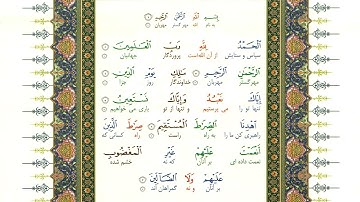 بِسْمِ اللَّهِ الرَّحْمَٰنِ الرَّحِيمِ
به نام الله مهرگستر مهربان
الْحَمْدُ لِلَّهِ رَبِّ الْعَالَمِينَ
سپاس و ستایش از آن الله‌است پروردگار جهانیان
الرَّحْمَٰنِ الرَّحِيمِ مَالِكِ يَوْمِ الدِّينِ
مهرگستر مهربان خداوندگار روز جزا
إِيَّاكَ نَعْبُدُ وَإِيَّاكَ نَسْتَعِينُ
تنها تو را می پرستیم و تنها از تو یاری می خواهیم
اهْدِنَا الصِّرَاطَ الْمُسْتَقِيمَ صِرَاطَ الَّذِينَ
راهبری کن ما را به راه راست راه کسانی که
أَنْعَمْتَ عَلَيْهِمْ غَيْرِ الْمَغْضُوبِ
نعمت داده ای بر آنان که نه خشم شده
عَلَيْهِمْ وَلَا الضَّالِّينَ
بر آنان و نه گمراهان